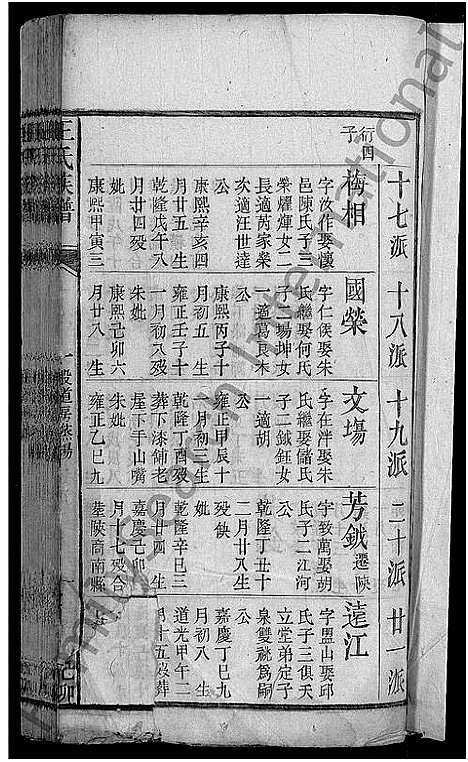 十七派 十八派 十九派 二十派 廿一派
行四
子
梅相
字汝作娶懷
邑陳氏子三
榮燿煇女二
長適芮家榮
次適汪世達
公
康熙辛亥四
月廿五 生
乾隆戊午八
月廿四 歿
妣
康熙甲寅三
國榮
字仁侯娶朱
氏繼娶何氏
子二埸坤女
一適葛良木
公
康熙丙子十
月初五 生
雍正壬子十
一月初八歿
朱妣
康熙己卯六
月廿八 生
文埸
字在泮娶朱
氏繼娶儲氏
子二鉞鈺女
一適胡
公
雍正甲辰十
月初三 生
乾隆丁酉歿
葬下漆師老
屋下手山嘴
朱妣
雍正乙巳九
芳鉞遷陝
字致萬娶胡
氏子二江河
公
乾隆丁丑十
二月廿八生
歿佚
妣
乾隆辛巳三
月廿四 生
嘉慶己卯
月十七歿合
葬陝商南縣
遠江
字盟山娶邱
氏子三俱夭
立堂弟定子
泉雙祧爲嗣
公
嘉慶丁巳九
月初八 生
道光甲午二
月十五歿葬
王氏族譜
己卯
Family Search International